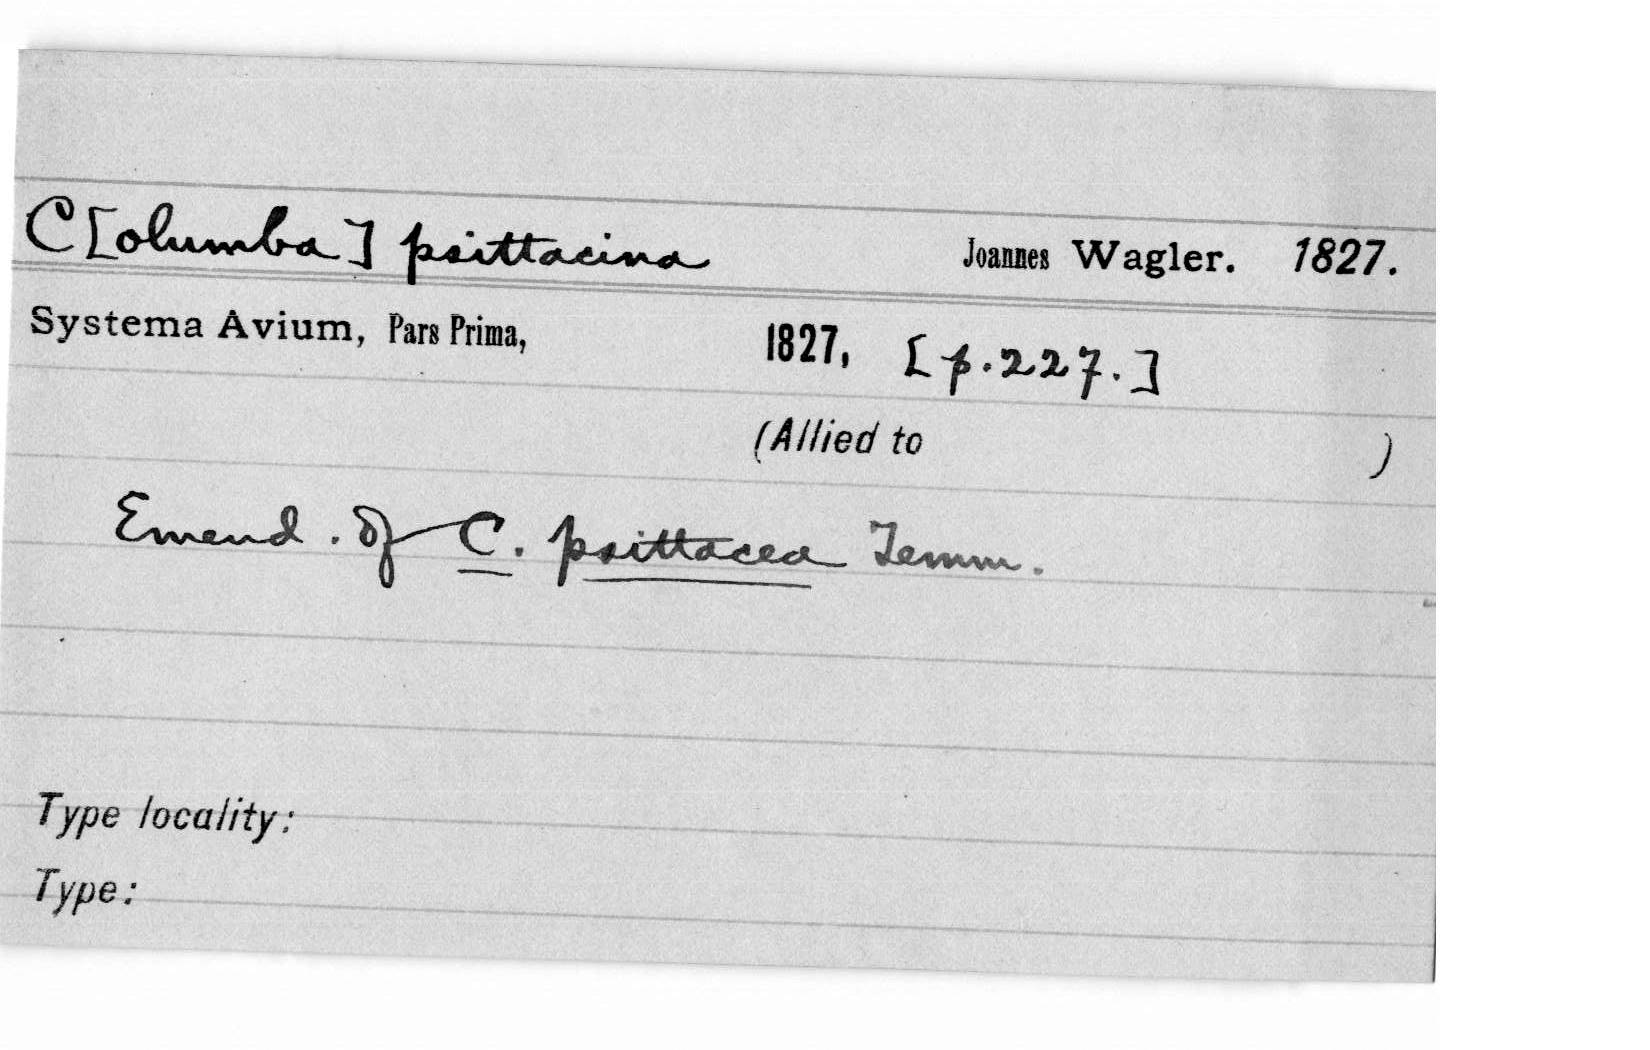 C[olumba] psittacina Joannes Wagler. 1827.
Systema Avium, Pars Prima, 1827, [p.227.]
(Allied to )
Emend. of C. psittacea Temm.
Type locality:
Type: